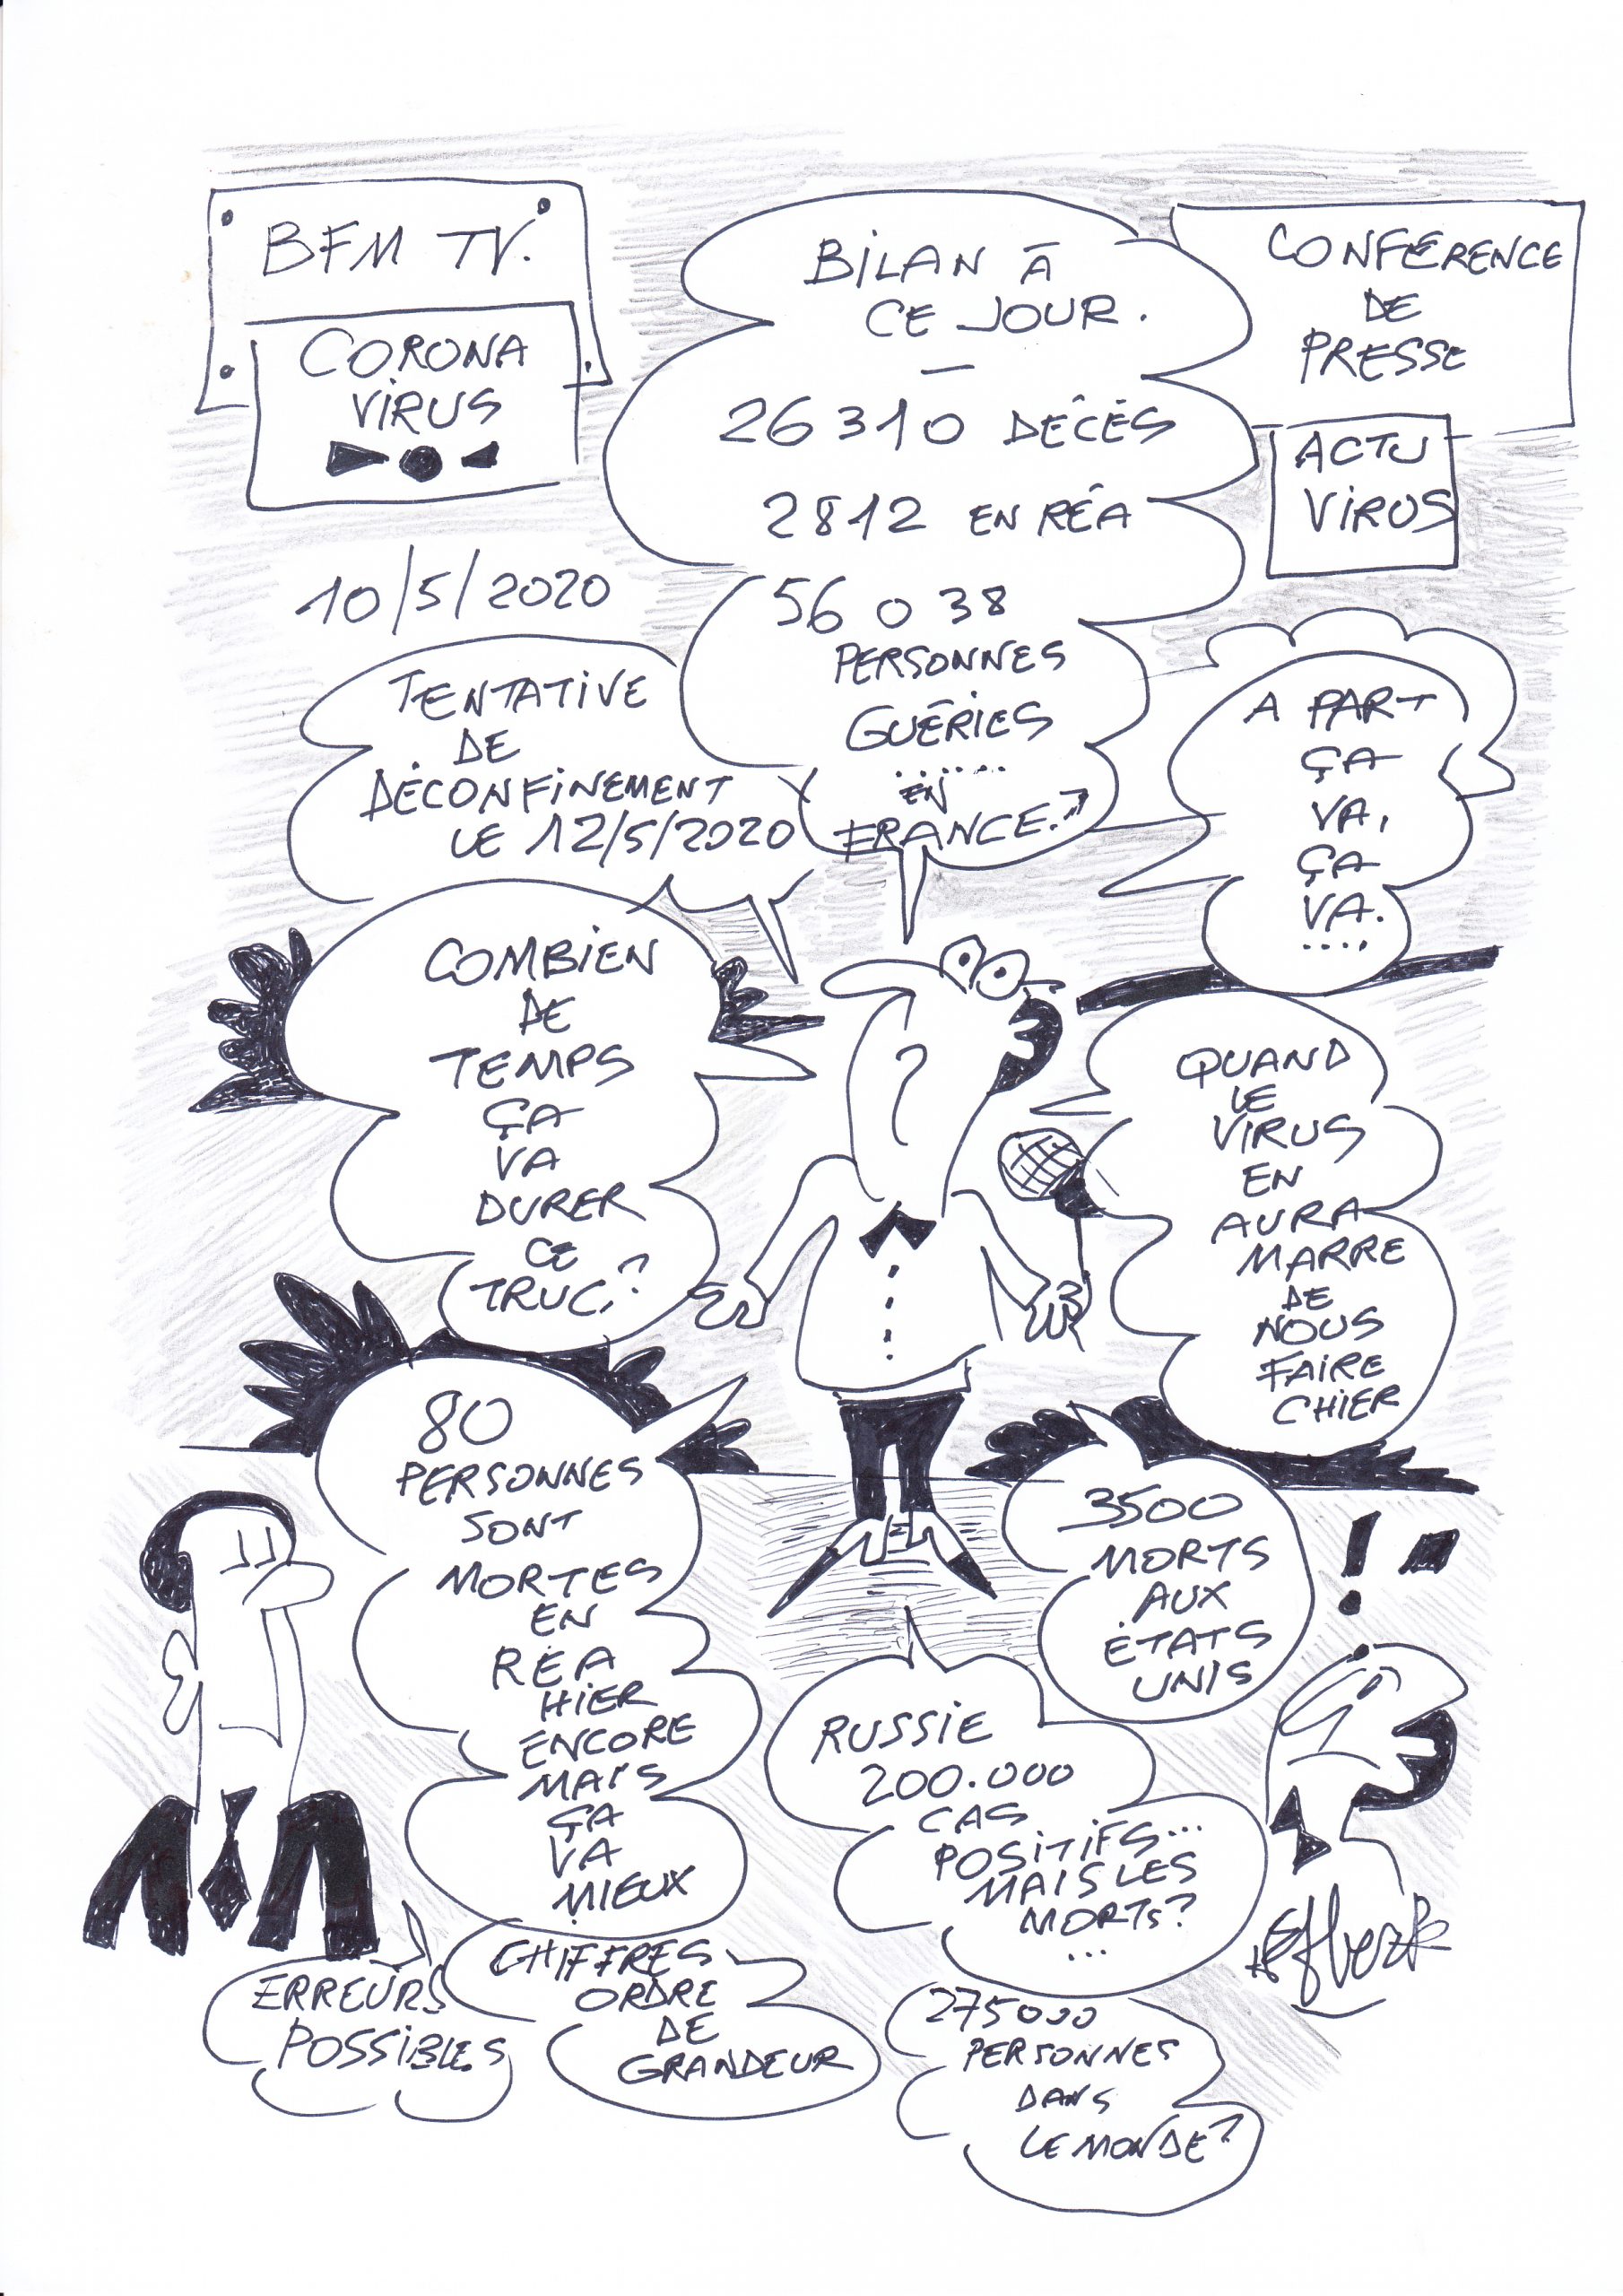 BFM TV.
CORONA
VIRUS
10/5/2020
BILAN À
CE JOUR.
—
26310 DÉCÈS
2812 EN RÉA
56 0 38
PERSONNES
GUÉRIES
......
EN
FRANCE.?
CONFÉRENCE
DE
PRESSE
ACTU
VIRUS
TENTATIVE
DE
DÉCONFINEMENT
LE 12/5/2020
A PART
ÇA
VA,
ÇA
VA.
....
COMBIEN
DE
TEMPS
ÇA
VA
DURER
CE
TRUC,?
QUAND
LE
VIRUS
EN
AURA
MARRE
DE
NOUS
FAIRE
CHIER
80
PERSONNES
SONT
MORTES
EN
RÉA
HIER
ENCORE
MAIS
ÇA
VA
MIEUX
3500
MORTS
AUX
ÉTATS
UNIS
!
RUSSIE
200.000
CAS
POSITIFS...
MAIS LES
MORTS?
...
ERREURS
POSSIBLES
CHIFFRES
ORDRE
DE
GRANDEUR
275000
PERSONNES
DANS
LE MONDE?